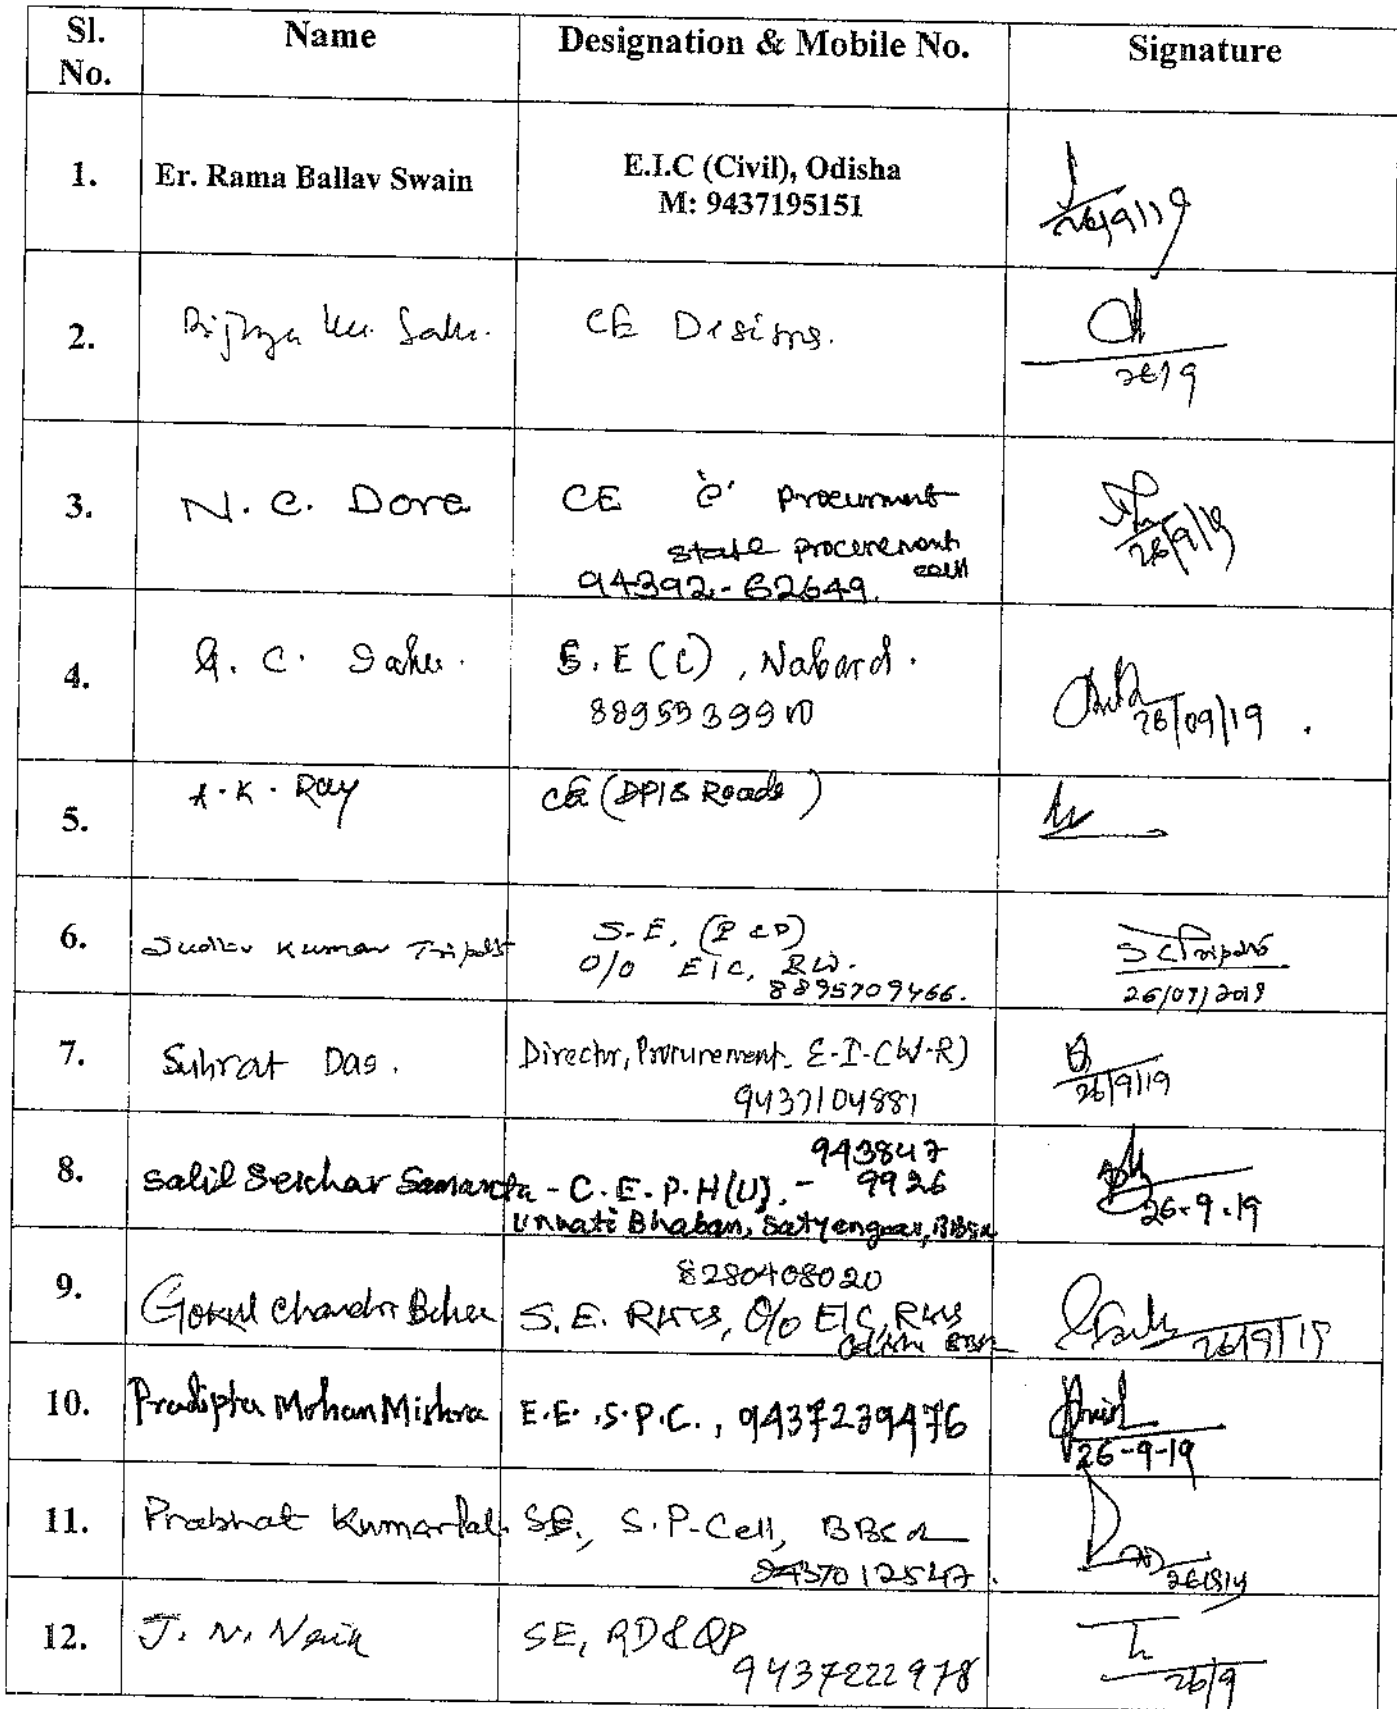 Sl. No. Name Designation & Mobile No. Signature
1. Er. Rama Ballav Swain E.I.C (Civil), Odisha
M: 9437195151
26/9/19
2. Bijaya Ku. Sahu. CE Designs.
26/9
3. N. C. Dora CE 'e' procurment
state procurement cell
94392-62649
26/9/19
4. G. C. Sahu. S.E (C), Nabard.
8895539910
26/09/19
5. A.K. Ray CE (DPI & Roads)
6. Kumar S.E,
O/o EIC, RW.
8895709466.
26/09/2019
7. Subrat Das. Director, Procurement E-I-C(W-R)
9437104881
26/9/19
8. Salil Sekhar Samanta - C.E.P.H(U). - 943847
9926
Unnati Bhaban, Satyanagar, BBSR
26-9-19
9. Gokul Chandra Behera 8280408020
S.E. RWSS, O/o EIC, RWS
Odisha BBSR
26/9/19
10. Pradipta Mohan Mishra E.E. S.P.C., 9437239476
26-9-19
11. Prabhat Kumar SE, S.P-Cell, BBSR
9437012547.
12. J. N. Naik SE, RD & QP
9437222978
26/9